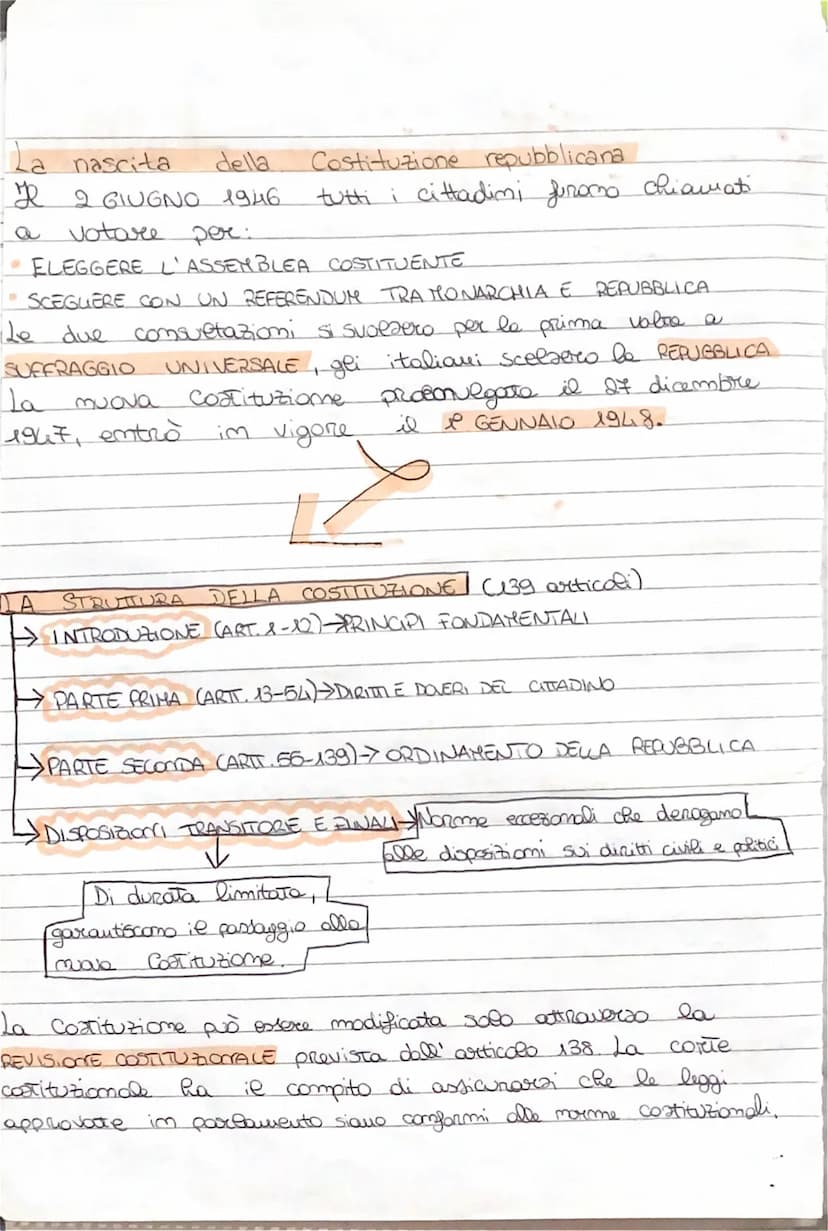 La nascita della Costituzione repubblicana
Il 2 GIUGNO 1946 tutti i cittadini furono chiamati
a votare per:
• ELEGGERE L'ASSEMBLEA COSTITUENTE
• SCEGLIERE CON UN REFERENDUM TRA MONARCHIA E REPUBBLICA
Le due consultazioni si svolsero per la prima volta a
SUFFRAGIO UNIVERSALE, gli italiani scelsero la REPUBBLICA
La nuova Costituzione promulgata il 27 dicembre
1947, entrò in vigore il 1° GENNAIO 1948.
LA STRUTTURA DELLA COSTITUZIONE (139 articoli)
→ INTRODUZIONE (ART. 1-12)→PRINCIPI FONDAMENTALI
→ PARTE PRIMA (ARTT. 13-54)→DIRITTI E DOVERI DEL CITTADINO
→ PARTE SECONDA (ARTT. 55-139)→ ORDINAMENTO DELLA REPUBBLICA
→ DISPOSIZIONI TRANSITORE E FINALI→Norme eccezionali che derogano
alle disposizioni sui diritti civili e politici
Di durata limitata,
garantiscono il passaggio alla
nuova Costituzione.
La Costituzione può essere modificata solo attraverso la
REVISIONE COSTITUZIONALE prevista dall'articolo 138. La corte
costituzionale ha il compito di assicurarsi che le leggi
approvate in parlamento siano conformi alle norme costituzionali.